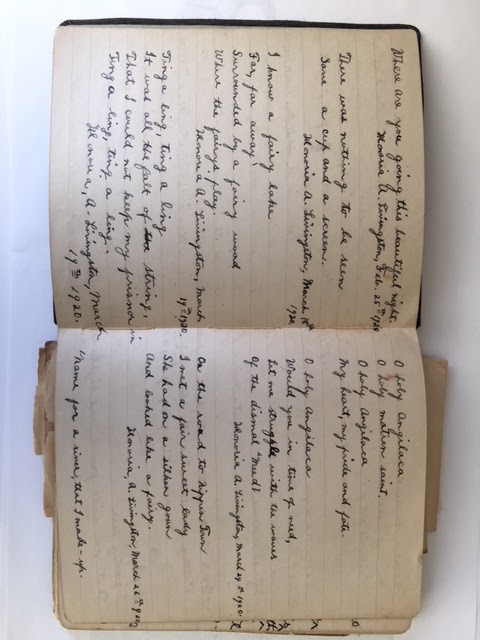 Where are you going this beautiful night.
Honoria A. Livingston, Feb. 25th 1920
There was nothing to be seen
Save a cup and a screen.
Honoria A. Livingston, March 18th
1920.
I know a fairy lake
Far, far away
Surrounded by a fairy wood
Where the fairys play.
Honoria A. Livingston, March
19th 1920.
Ting a ling, ting a ling
It was all the falt of the string,
That I could not keep my prisnor in
Ting a ling, ting, a ling.
Honoria, A. Livingston, March
19th 1920.
O holy Angilaca.
O holy matron saint.
O holy Angilaca
My heart, my pride and fate.
O holy Angilaca
Would you in time of need,
Let me struggle with the waves
Of the dismal "Meed?
Honoria A. Livingston, March 24th 1920.
On the road to Zippen Town
I met a fair sweet lady
She had on a silken gown
And looked like a fairy.
Honoria, A. Livingston, March 26th 1920
"Name for a river, that I made-up.